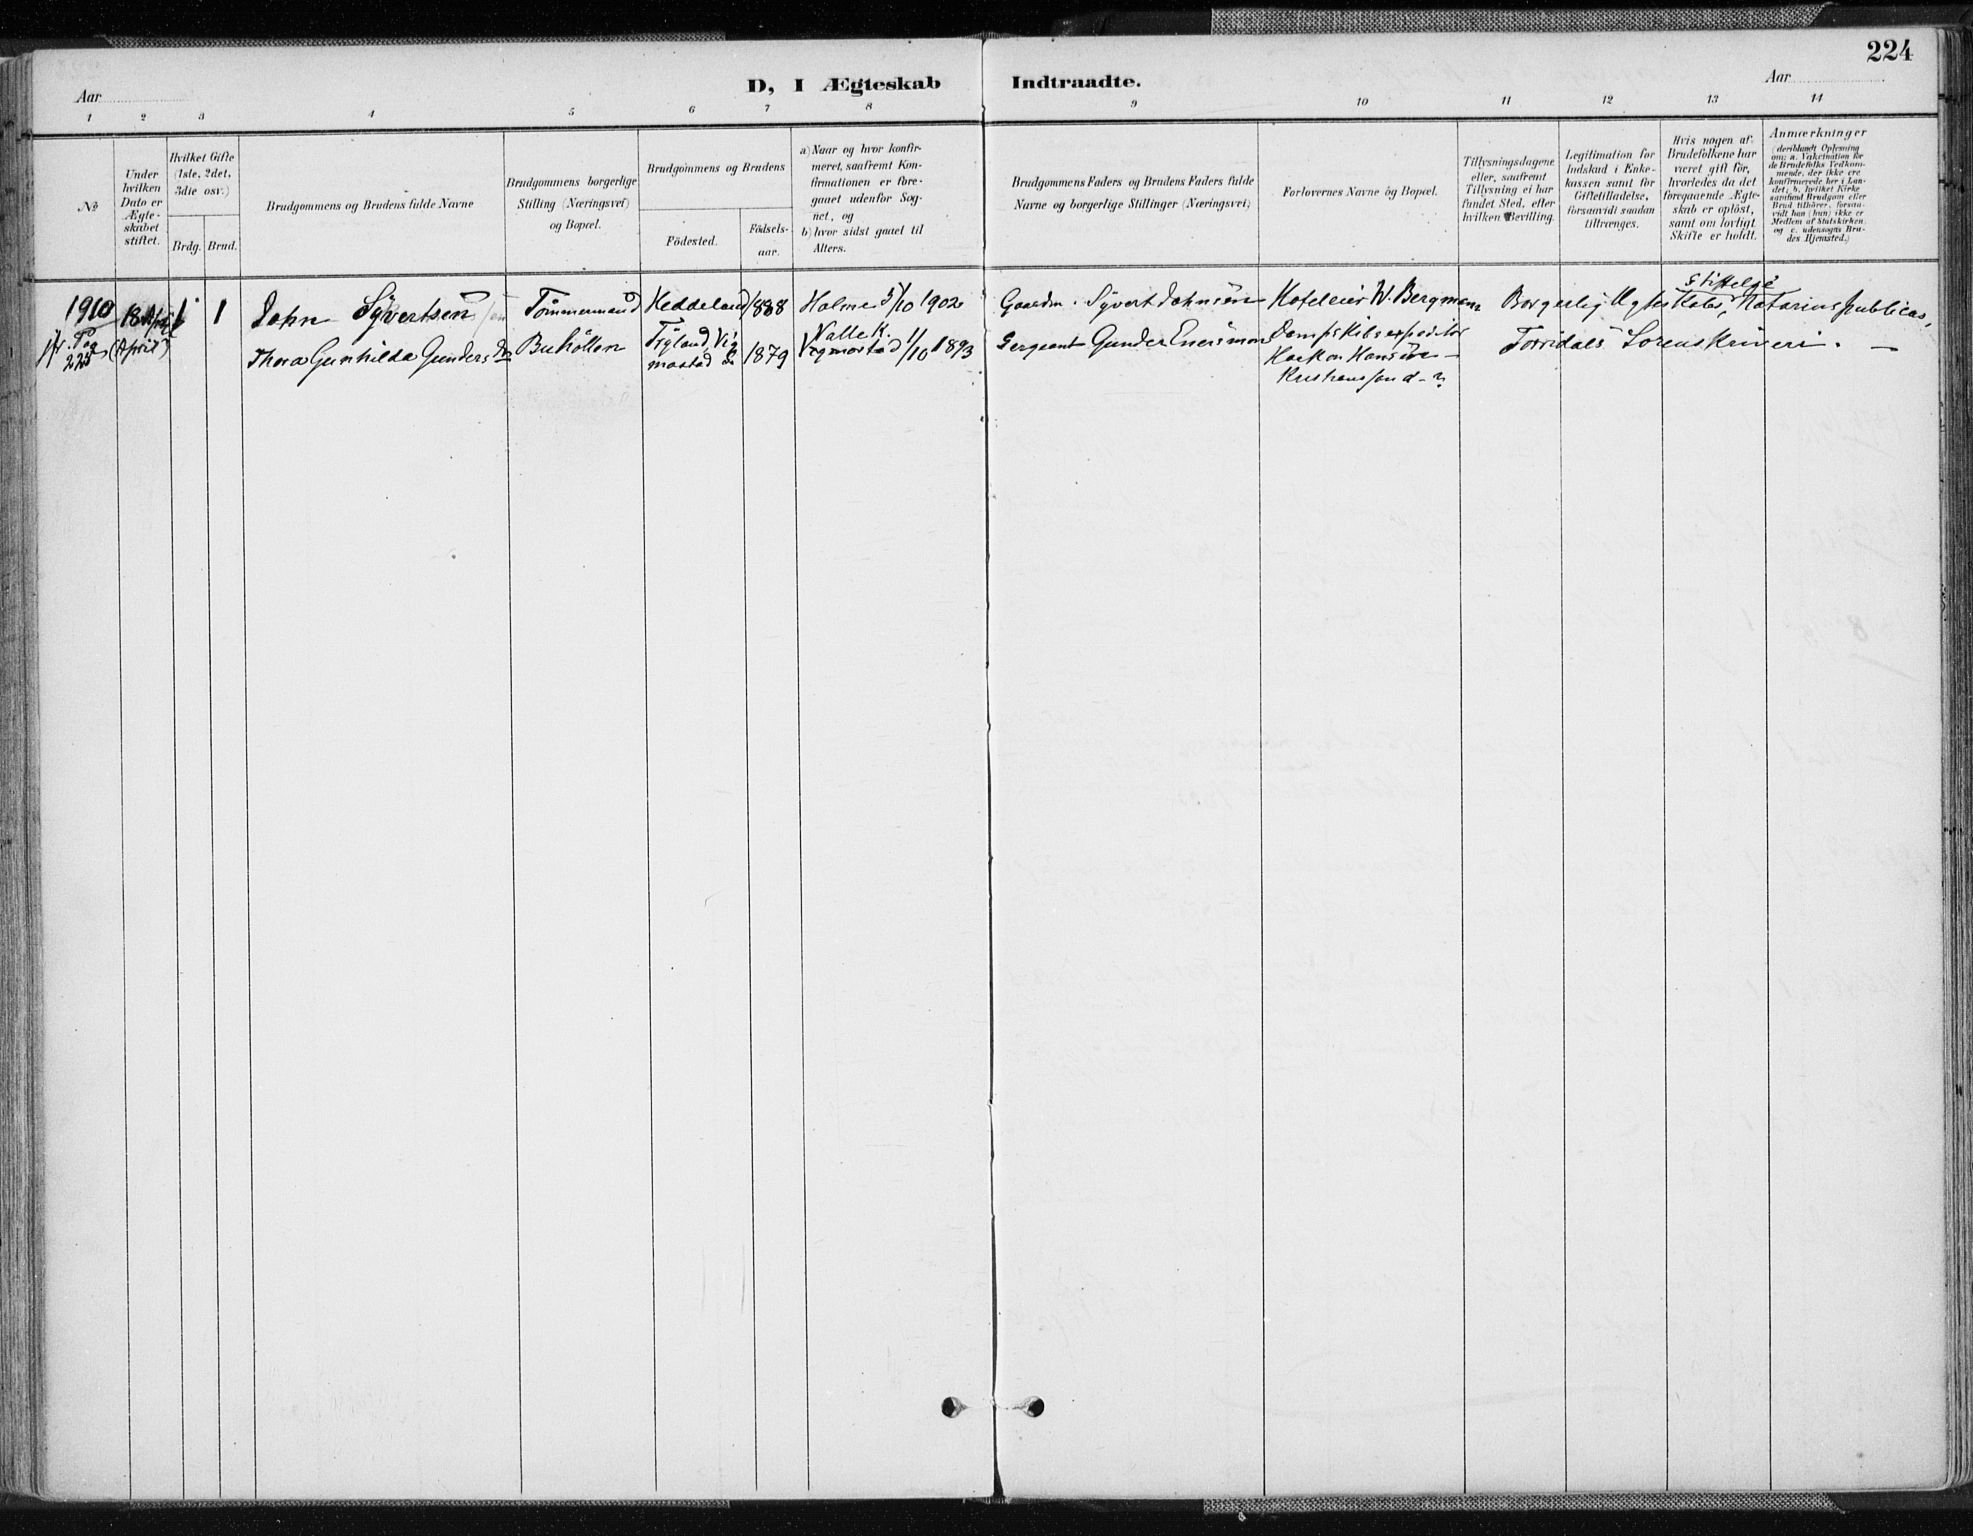 224
D, I Ægteskab Indtraadte.
Aar Aar
1 2 3 4 5 6 7 8 9 10 11 12 13 14
№
Under hvilken Dato er Ægteskabet stiftet.
Hvilket Gifte (1ste, 2det, 3die osv.)
Brdg. Brud.
Brudgommens og Brudens fulde Navne
Brudgommens borgerlige Stilling (Næringsvei) og Bopæl.
Brudgommens og Brudens
Födested.
Födsels-aar.
a) Naar og hvor konfirmeret, saafremt Konfirmationen er foregaaet udenfor Sognet, og
b) hvor sidst gaaet til Alters.
Brudgommens Faders og Brudens Faders fulde Navne og borgerlige Stillinger (Næringsvei)
Forlovernes Navne og Bopæl.
Tillysningsdagene eller, saafremt Tillysning ei har fundet Sted, efter hvilken Bevilling.
Legitimation for Indskud i Enkekassen samt for Giftetilladelse, forsaavidt saadan tiltrænges.
Hvis nogen af Brudefolkene har været gift før, hvorledes da det foregaaende Ægteskab er opløst, samt om lovligt Skifte er holdt.
Anmærkninger (deriblandt Oplysning om: a. Vakcination for de Brudefolks Vedkommende, der ikke ere konfirmerede her i Landet; b. hvilket Kirkesamfund Brudgom eller Brud tilhører, forsaavidt han (hun) ikke er Medlem af Statskirken; og c. udensogns Brudes Hjemsted.)
1910 18 April 1 1 John Syvertsen Tömmermand Heddeland 1888 Holme 5/10 1902 Gaardm. Syvert Johnsen Hoteleier W. Bergmann Borgerlig Ægteskabs stiftelse, Notarius publicus,
jfr. Pag 225 (April) Thora Gunhilda Gundersdtr Buhöllen Tigland, Vigmostad 1879 Valle K. Vigmostad 1/10 1893 Sergeant Gunder Dampskibsexpeditör Torridals Sorenskriveri. —
Haakon Hansen —
Kristianssand